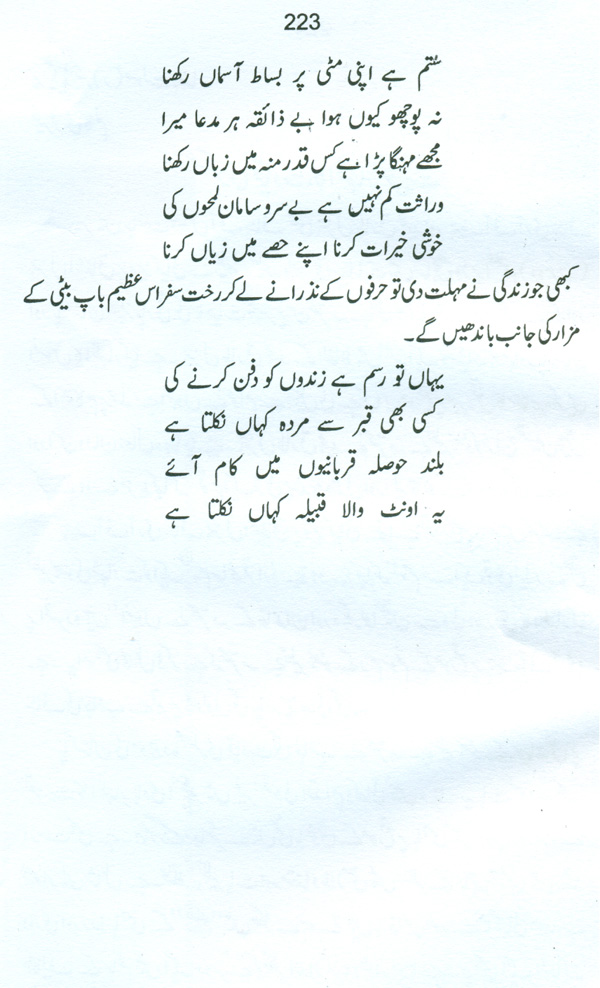 223
ستم ہے اپنی مٹی پر بساط آسماں رکھنا
نہ پوچھو کیوں ہوا بے ذائقہ ہر مدعا میرا
مجھے مہنگا پڑا ہے کس قدر منہ میں زباں رکھنا
وراثت کم نہیں ہے بے سرو سامان لمحوں کی
خوشی خیرات کرنا اپنے حصے میں زیاں کرنا
کبھی جو زندگی نے مہلت دی تو حرفوں کے نذرانے لے کر رخت سفر اس عظیم باپ بیٹی کے
مزار کی جانب باندھیں گے۔
یہاں تو رسم ہے زندوں کو دفن کرنے کی
کسی بھی قبر سے مردہ کہاں نکلتا ہے
بلند حوصلہ قربانیوں میں کام آئے
یہ اونٹ والا قبیلہ کہاں نکلتا ہے